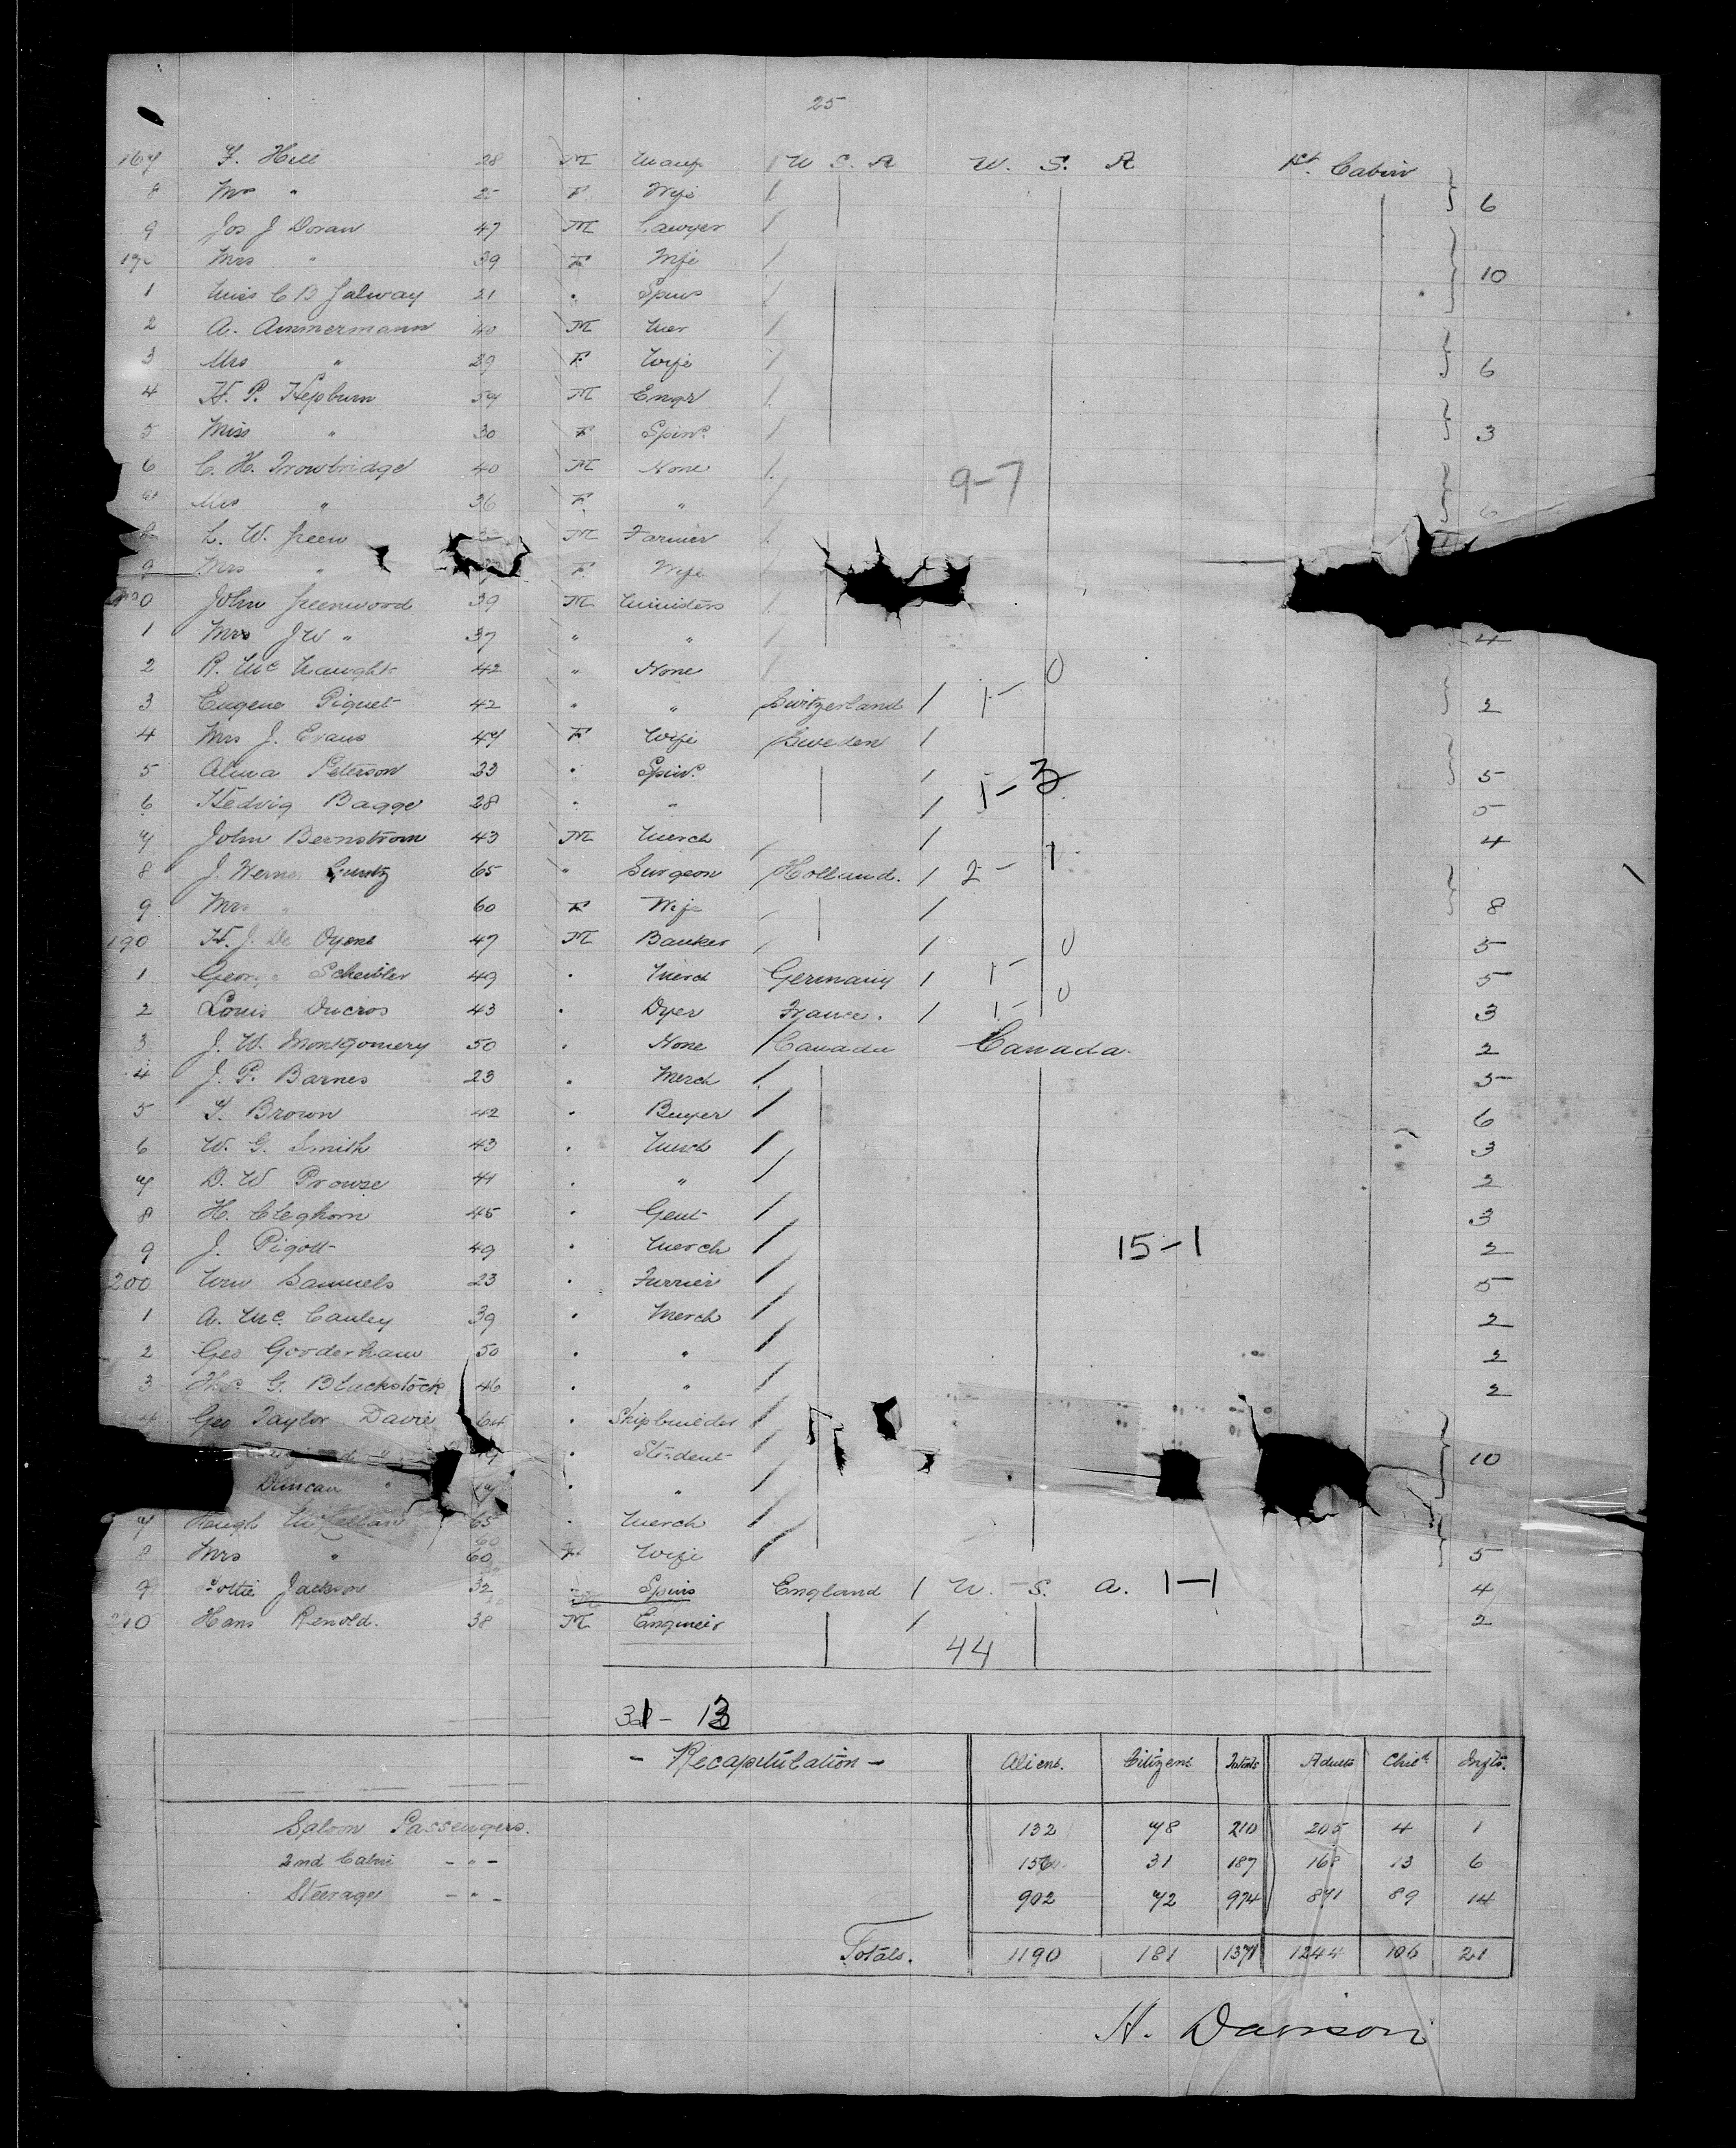 25
167 F. Hill 28 M Manf U S A U. S. A 1st Cabin
8 Mrs " 25 F Wife 6
9 Jos J Doran 47 M Lawyer
170 Mrs " 39 F Wife 10
1 Miss C B Galway 21 " Spins
2 A. Ammermann 40 M Mer
3 Mrs " 29 F Wife 6
4 H. P. Hepburn 54 M Engr
5 Miss " 30 F Spinr 3
6 C. H. Trowbridge 40 M None 9-7
7 Mrs " 36 F " 6
8 L. W. Green M Farmer
9 Mrs " F Wife
180 John Greenwood 39 M Ministers
1 Mrs J W " 37 " " 4
2 R. Mc Naught 42 " None 0
3 Eugene Piquet 42 " " Switzerland / 1- 2
4 Mrs J. Evans 47 F Wife Sweden /
5 Alma Peterson 23 " Spinr / 1-3 5
6 Hedvig Bagge 28 " " / 5
7 John Bernstrom 43 M Merch / 4
8 J. Werner Guntz 65 " Surgeon Holland. / 2- 1
9 Mrs " 60 F Wife / 8
190 H. J. De Oyens 47 M Banker / 0 5
1 George Scheibler 49 " Merch Germany / 1- 5
2 Louis Ducros 43 " Dyer France. / 1- 0 3
3 J. W. Montgomery 50 " None Canada Canada. 2
4 J. P. Barnes 23 " Merch 5
5 T. Brown 42 " Buyer 6
6 W. G. Smith 43 " Merch 3
7 D. W Prowse 41 " " 2
8 H. Cleghorn 45 " Gent 3
9 J. Pigott 49 " Merch 15-1 2
200 Wm Samuels 23 " Furrier 5
1 A. Mc. Cauley 39 " Merch 2
2 Geo Gooderham 50 " " 2
3 G. Blackstock 46 " " 2
4 Geo Taylor Davie 64 " Shipbuilder
" Student 10
Duncan " " "
7 Hough McKellan 65 " Merch
8 Mrs " 60 F Wife 5
9 Lottie Jackson 32 " Spins England / U. S. A. 1-1 4
210 Hans Renold. 38 M Engineer / 2
44
31- 13
- Recapitulation - Aliens. Citizens Totals Adults Chil Infts.
Saloon Passengers. 132 78 210 205 4 1
2nd Cabin - " - 156 31 187 168 13 6
Steerage - " - 902 72 974 871 89 14
Totals. 1190 181 1371 1244 106 21
H. Davison